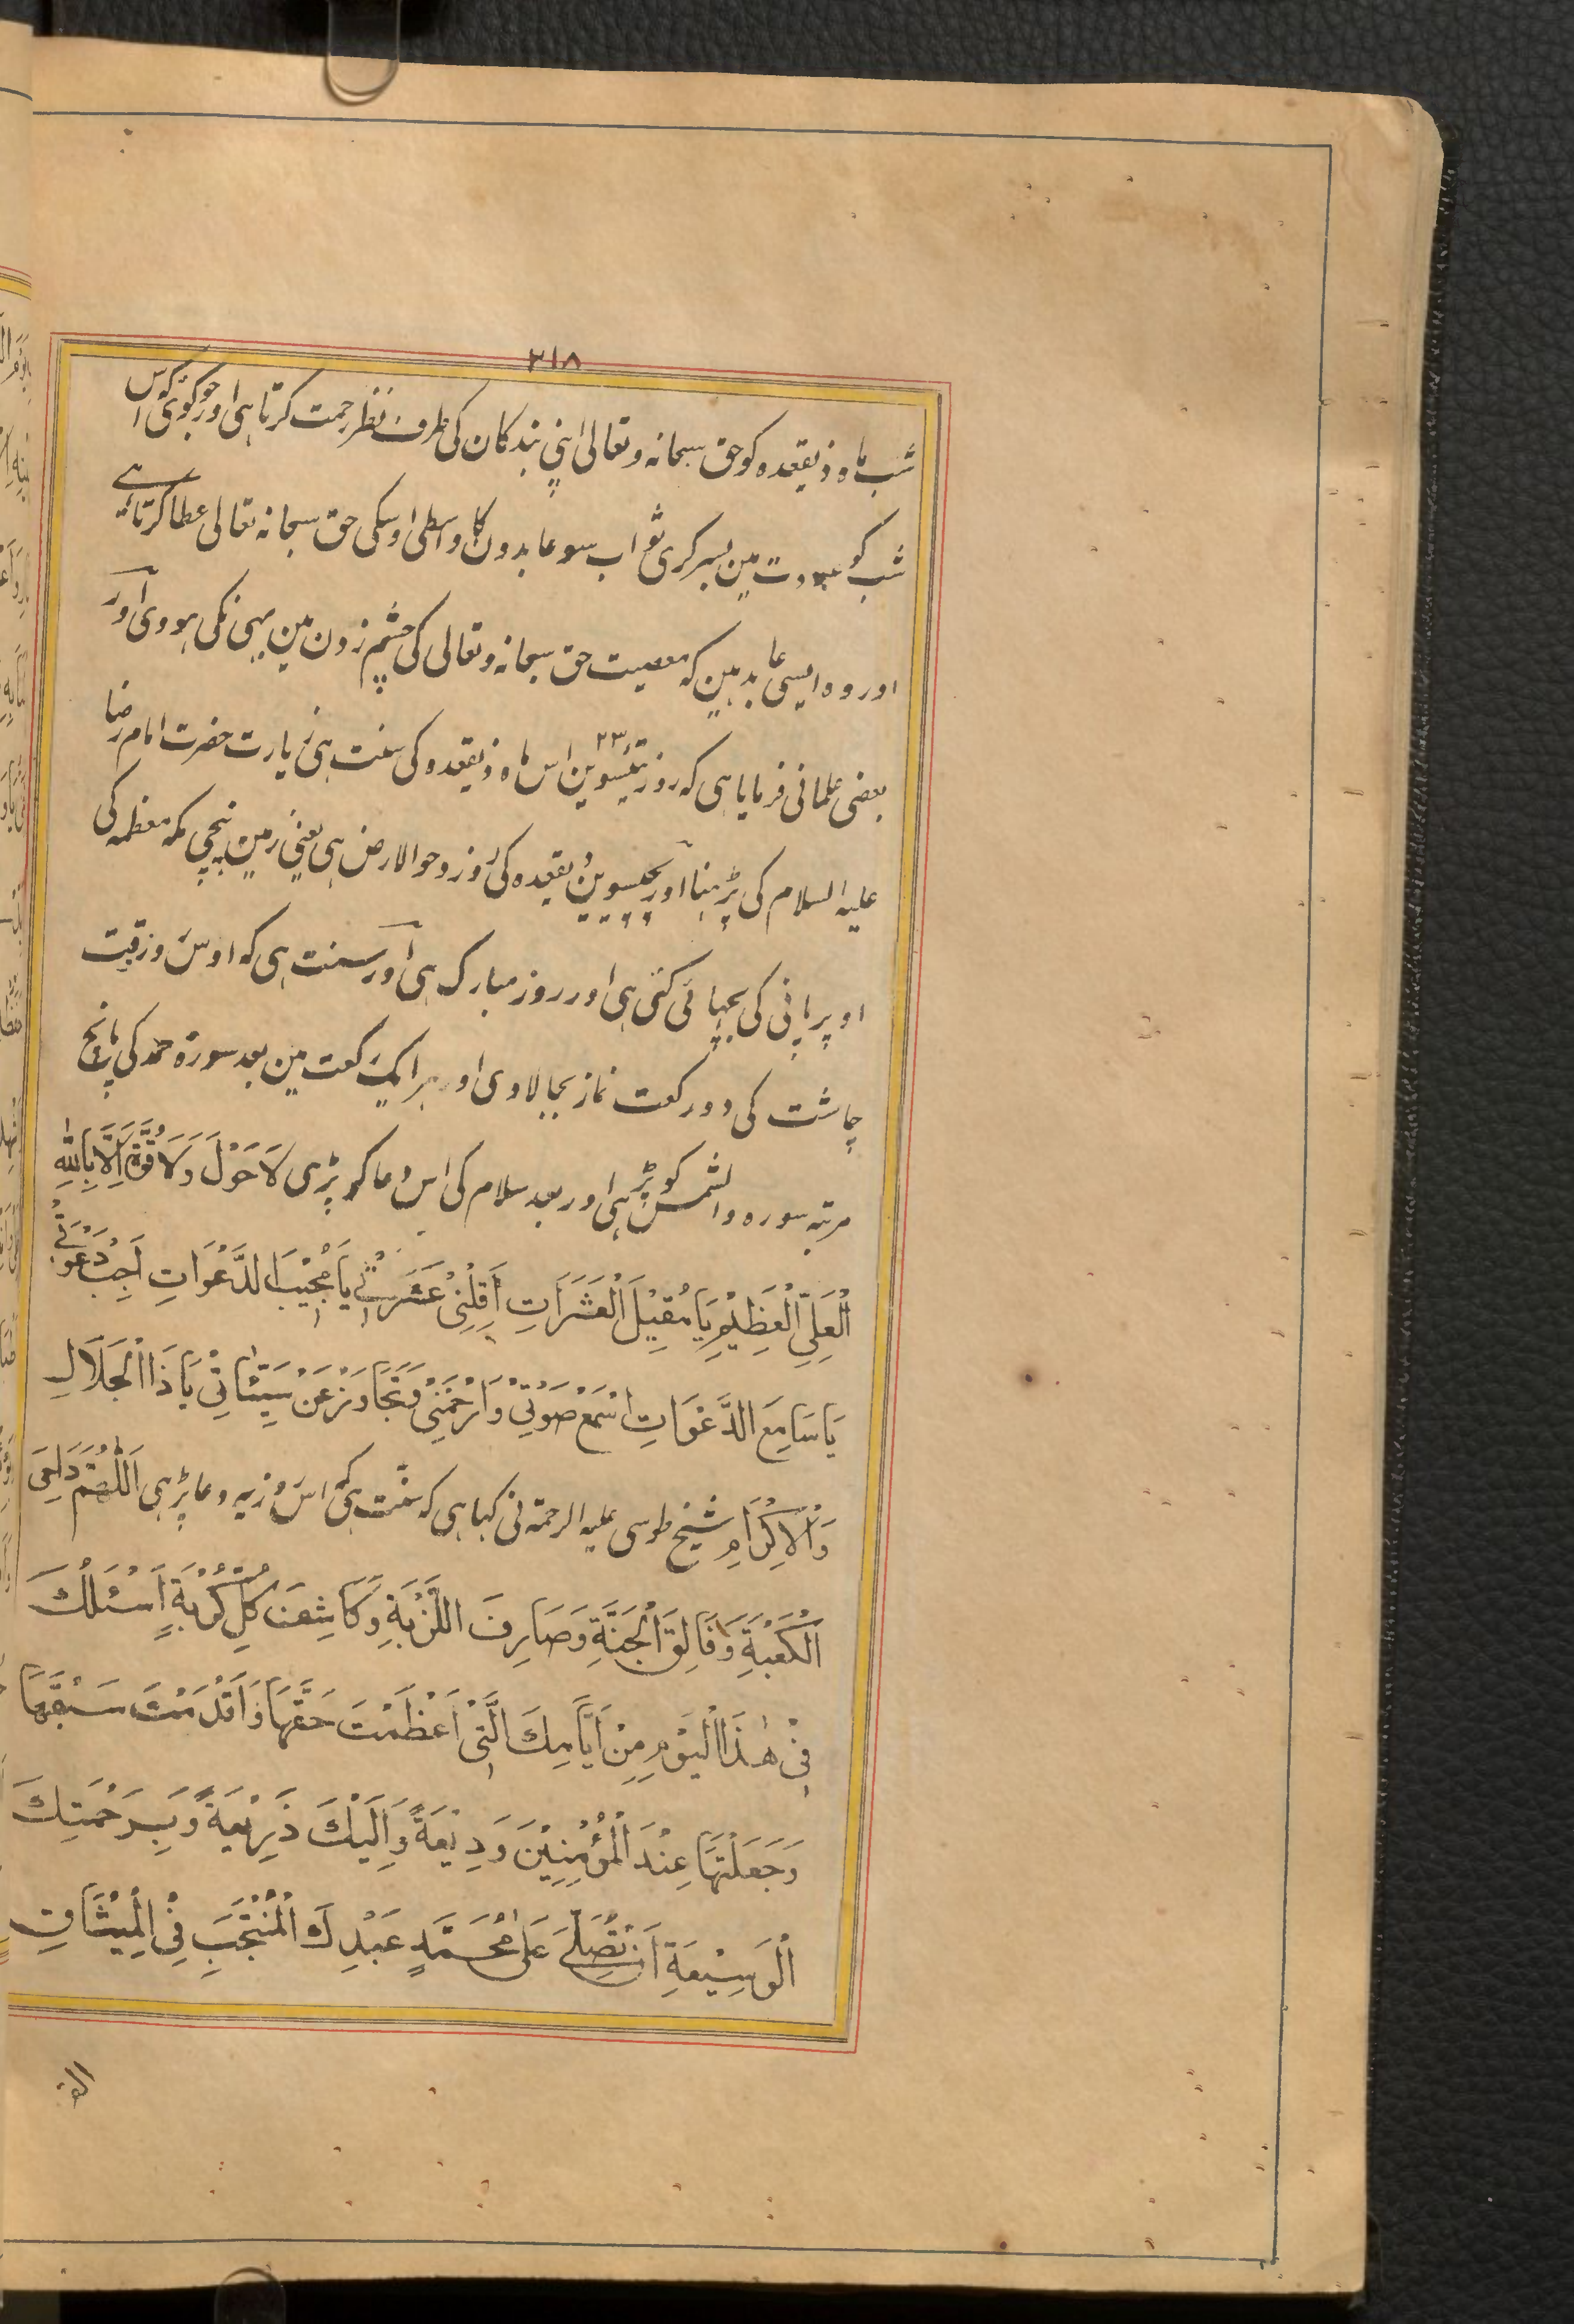 ٢١٨
شب ماہ ذیقعدہ کو حق سبحانہ و تعالی اپنی بندکان کی طرف نظر رحمت کرتا ہی اور جو کوئی کہ اس
شب کو عبادت مین بسر کری ثواب سو عابدون کا واسطی اوسکی حق سبحانہ تعالی عطا کرتا ہے
اور وہ ایسی عابد ہین کہ معصیت حق سبحانہ و تعالی کی چشم زدن مین بہی نکی ہووی اور
بعضی علمانی فرمایا ہی کہ روز تیئسوین ٢٣ اس ماہ ذیقعدہ کی سنت ہی زیارت حضرت امام رضا
علیہ السلام کی پڑہنا اور پچیسوین ذیقعدہ کی روز دحوالارض ہی یعنی زمین نیچی مکہ معظمہ کی
اوپر پانی کی بچہائی کئی ہی اور روز مبارک ہی اور سنت ہی کہ اوس روز وقت
چاشت کی دو رکعت نماز بجا لاوی اور ہر ایک رکعت مین بعد سورۃ حمد کی پانچ
مرتبہ سورہ والشمس کو پڑہی اور بعد سلام کی اس دعا کو پڑہی لَا حَوْلَ وَلَا قُوَّةَ اِلَّا بِاللّٰهِ
الْعَلِيِّ الْعَظِيْمِ يَا مُقِيْلَ الْعَثَرَاتِ اَقِلْنِيْ عَثْرَتِيْ يَا مُجِيْبَ الدَّعَوَاتِ اَجِبْ دَعْوَتِيْ
يَا سَامِعَ الدَّعَوَاتِ اسْمَعْ صَوْتِيْ وَارْحَمْنِيْ وَتَجَاوَزْ عَنْ سَيِّئَاتِيْ يَا ذَا الْجَلَالِ
وَالْاِكْرَامِ شیخ طوسی علیہ الرحمۃ نی کہا ہی کہ سنّت ہی کہ اس روز یہ دعا پڑہی اَللّٰهُمَّ دَاحِيَ
الْكَعْبَةِ وَفَالِقَ الْحَبَّةِ وَصَارِفَ اللَّزْبَةِ وَكَاشِفَ كُلِّ كُرْبَةٍ اَسْئَلُكَ
فِيْ هٰذَا الْيَوْمِ مِنْ اَيَّامِكَ الَّتِيْ اَعْظَمْتَ حَقَّهَا وَاَقْدَمْتَ سَبْقَهَا
وَجَعَلْتَهَا عِنْدَ الْمُؤْمِنِيْنَ وَدِيْعَةً وَاِلَيْكَ ذَرِيْعَةً وَبِرَحْمَتِكَ
الْوَسِيْعَةِ اَنْ تُصَلِّيَ عَلٰى مُحَمَّدٍ عَبْدِكَ الْمُنْتَجَبِ فِي الْمِيْثَاقِ